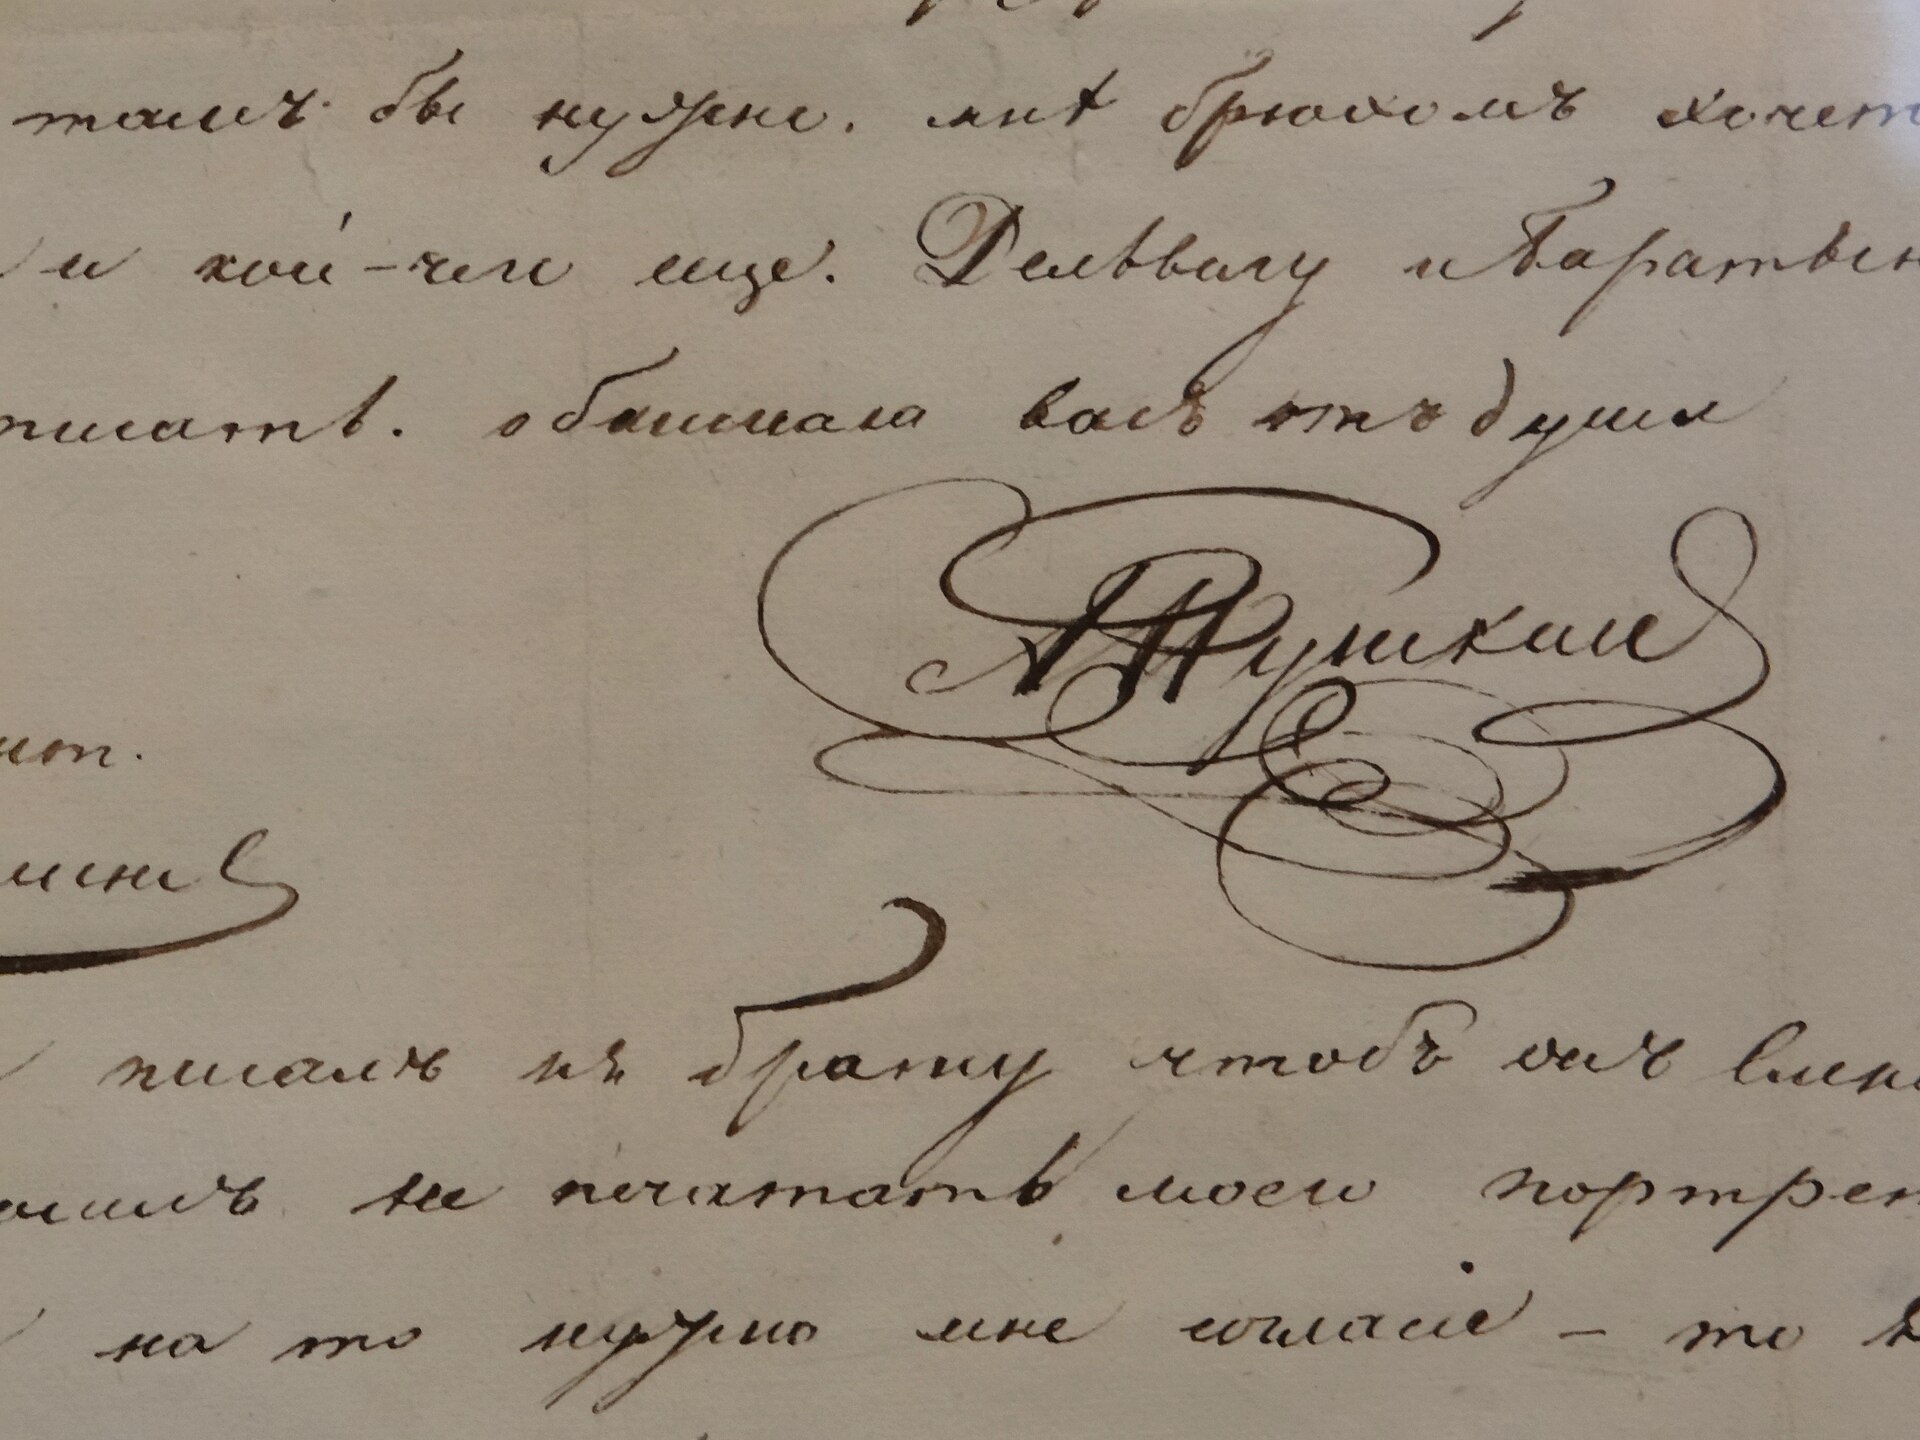 тамъ бы нужно. мнѣ брюхомъ хочет
и кой-чего еще. Дельвигу и Баратын
писать. обнимаю васъ отъ души
А Пушкин
писалъ къ брату чтобъ онъ
не печатать моего портрет
на то нужно мне согласие – то